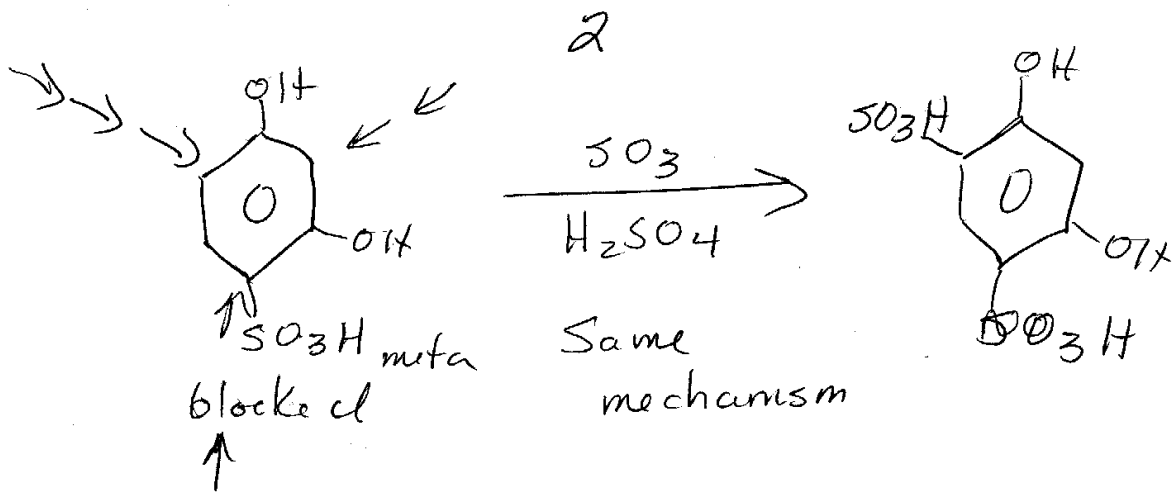 2
OH
OH
SO3H
meta
blocked
SO3
H2SO4
Same
mechanism
OH
SO3H
OH
SO3H